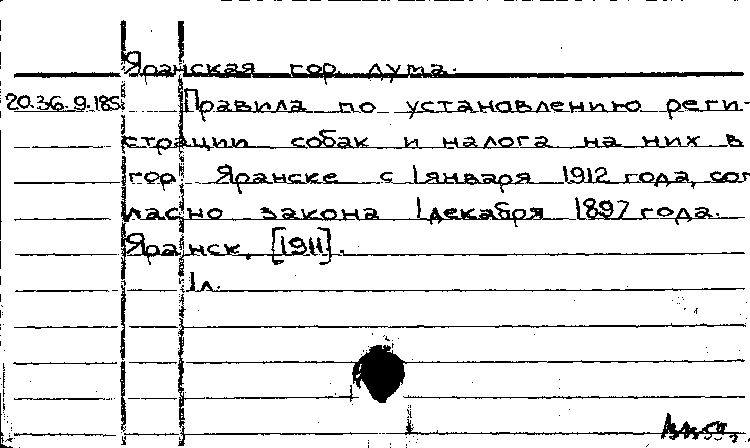 Яранская гор. дума.
20.36.9.185 Правила по установлению реги-
страции собак и налога на них в
гор. Яранске с 1 января 1912 года, сог
ласно закона 1 декабря 1897 года.
Яранск, [1911].
1 л.